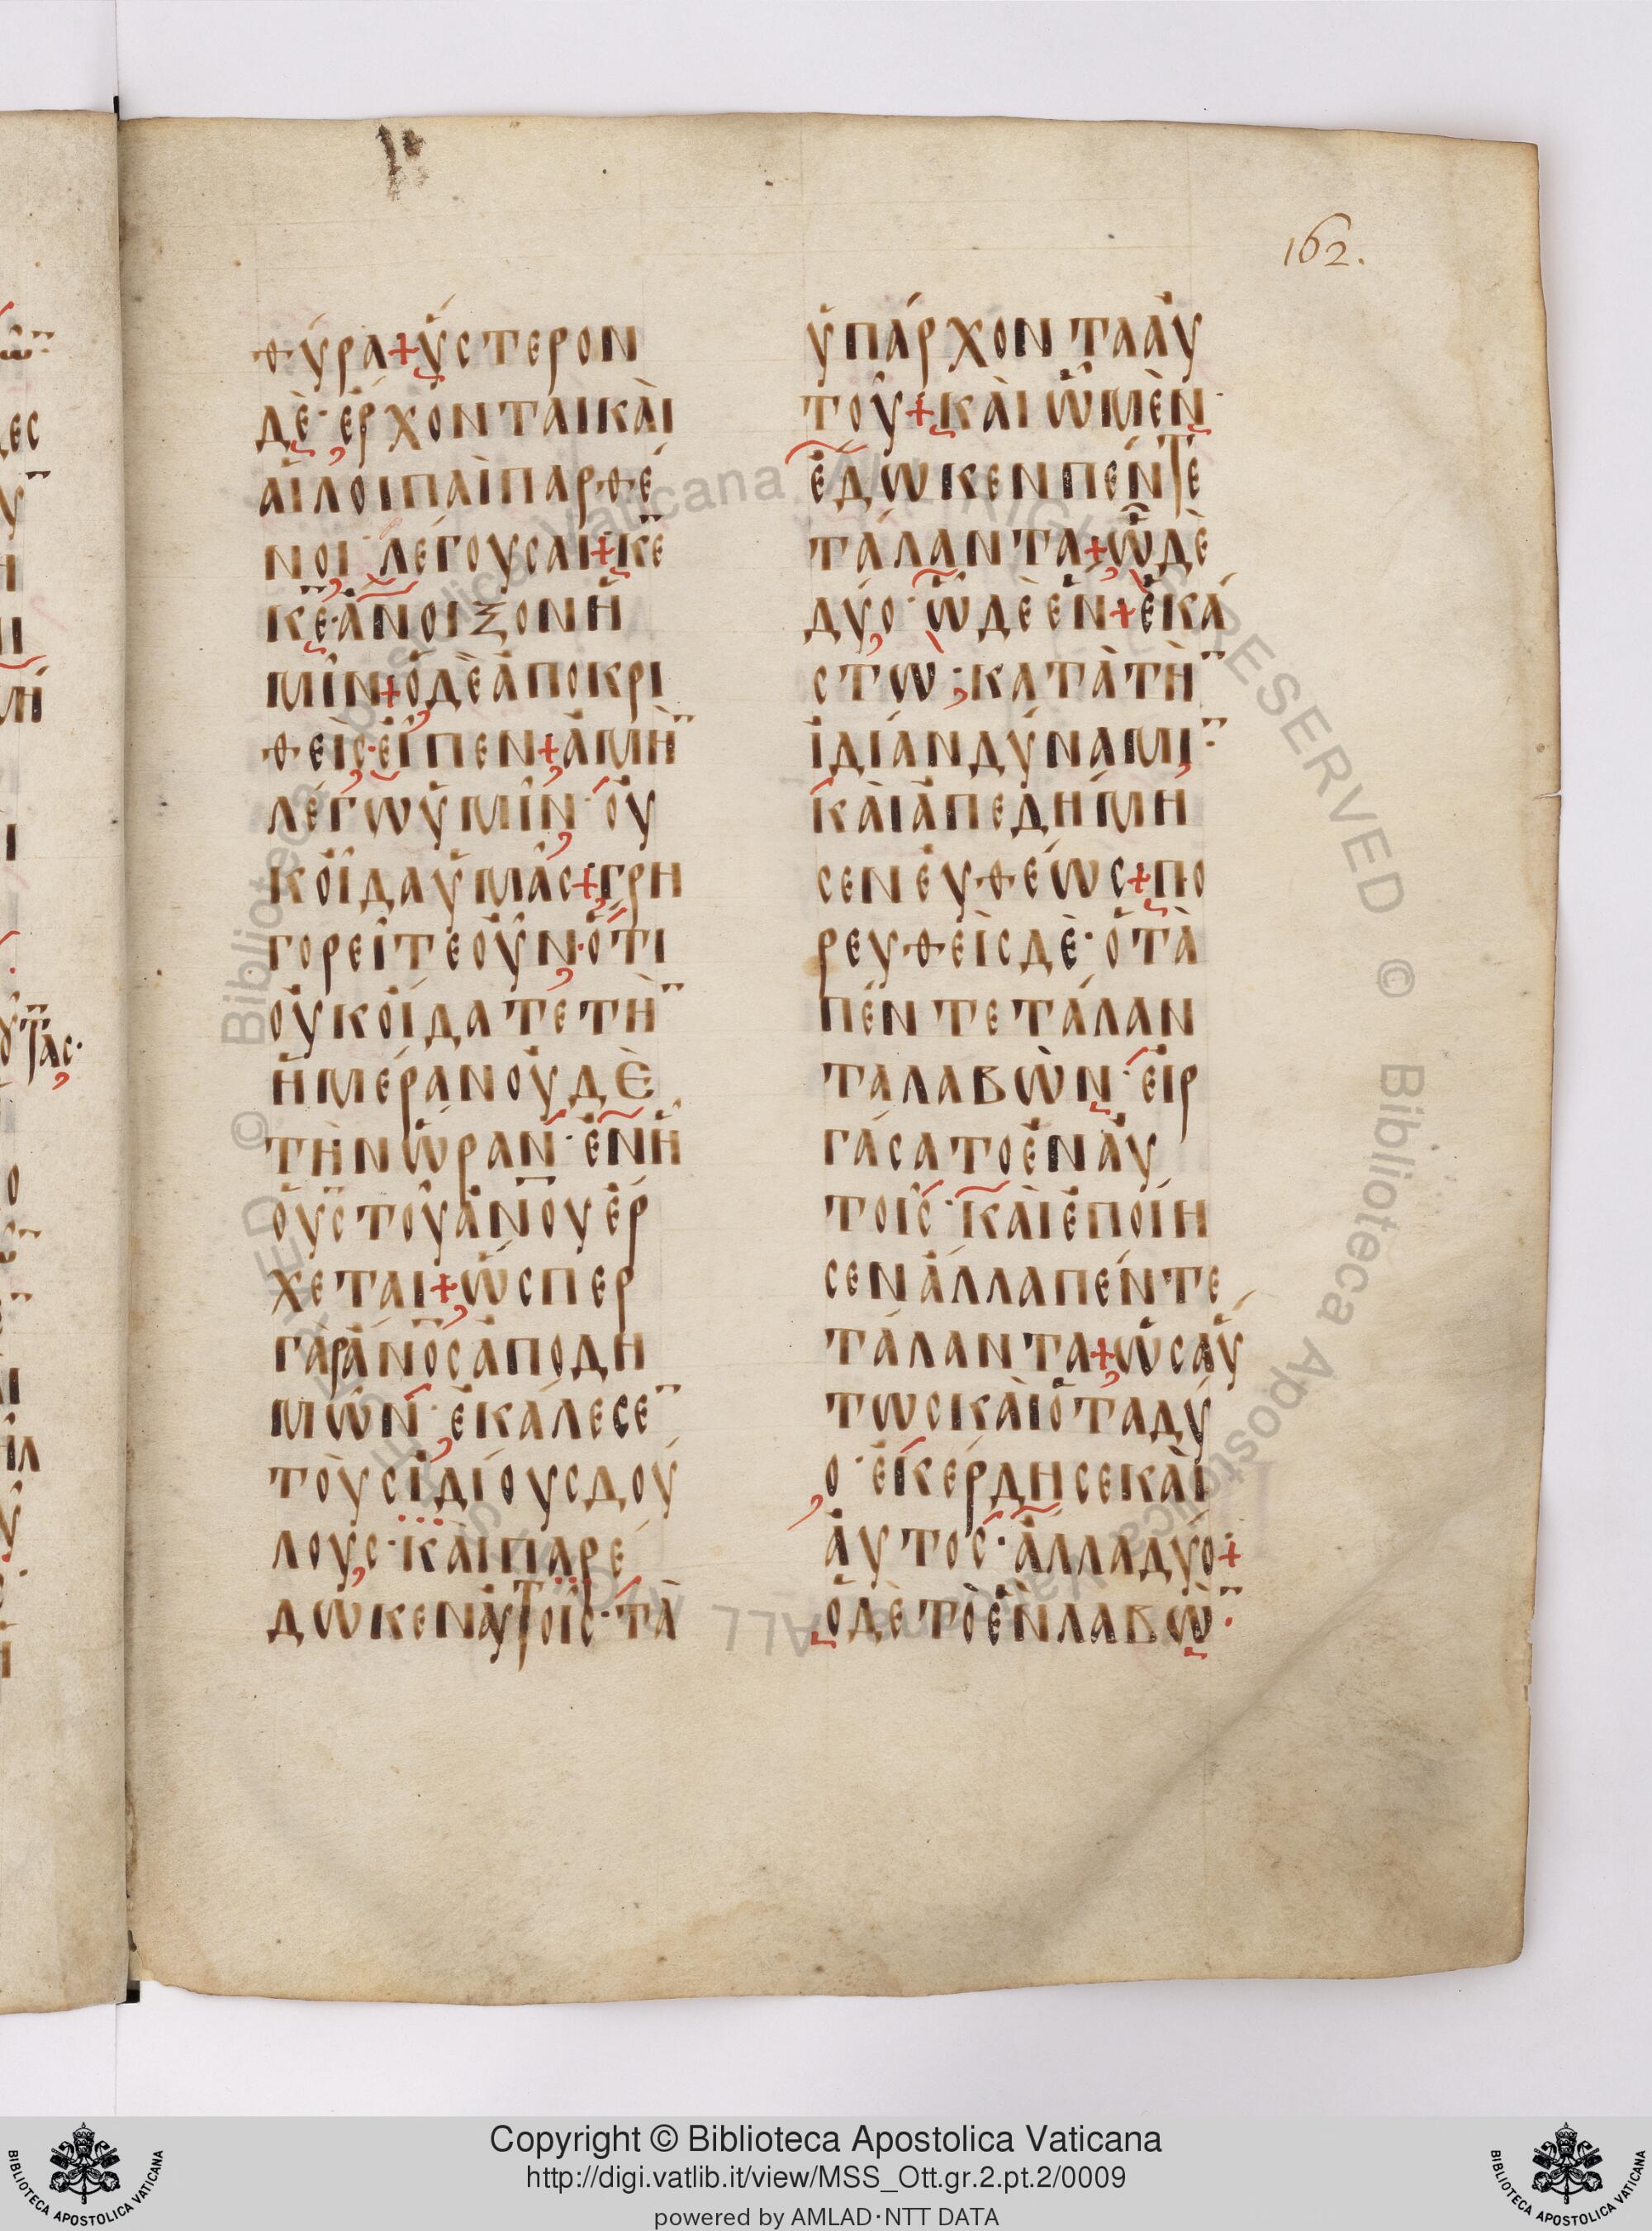 162.
θύρα+ὕστερον
δὲ·ἔρχονται καὶ
αἱ λοιπαὶ παρθέ
νοι·λέγουσαι+κ̅ε̅
κ̅ε̅·ἄνοιξον ἡ
μῖν+ὁ δὲ ἀποκρι
θεὶς·εἶπεν+ἀμὴ̅
λέγω ὑμῖν·οὐ
κ οἶδα ὑμᾶς+γρη
γορεῖτε οὖν·ὅτι
οὐκ οἴδατε τὴ̅
ἡμέραν οὐδὲ
τὴν ὥραν·ἐν ἧ
ὁ υ̅ς̅ τοῦ ἀ̅ν̅ο̅υ̅ ἔρ
χεται+ὥσπερ
γὰρ ἄ̅ν̅ο̅ς̅ ἀποδη
μῶν·ἐκάλεσε̅
τοὺς ἰδίους δού
λους·καὶ παρέ
δωκεν αὐτοῖς·τὰ
ὑπάρχοντα αὐ
τοῦ+καὶ ὧ μὲν·
ἔδωκεν πέντε
τάλαντα+ὧ δὲ
δύο·ὧ δὲ ἕν+ἑκά
στω·κατὰ τὴ̅
ἰδίαν δύναμι̅·
καὶ ἀπεδήμη
σεν εὐθέως+πο
ρευθεὶς δὲ·ὁ τὰ
πέντε τάλαν
τα λαβὼν·εἰρ
γάσατο ἐν αὐ
τοῖς·καὶ ἐποίη
σεν ἄλλα πέντε
τάλαντα+ὡσαύ
τως καὶ ὁ τὰ δύ
ο·ἐκέρδησε καὶ
αὐτος·ἄλλα δύο+
ὁ δὲ τὸ ἓν λαβὼ̅·
ουτας·
© Biblioteca Apostolica Vaticana ALL RIGHTS RESERVED © Biblioteca Apostolica Vaticana ALL RIGHTS RESERVED
Copyright © Biblioteca Apostolica Vaticana
http://digi.vatlib.it/view/MSS_Ott.gr.2.pt.2/0009
powered by AMLAD·NTT DATA
BIBLIOTECA APOSTOLICA VATICANA
BIBLIOTECA APOSTOLICA VATICANA